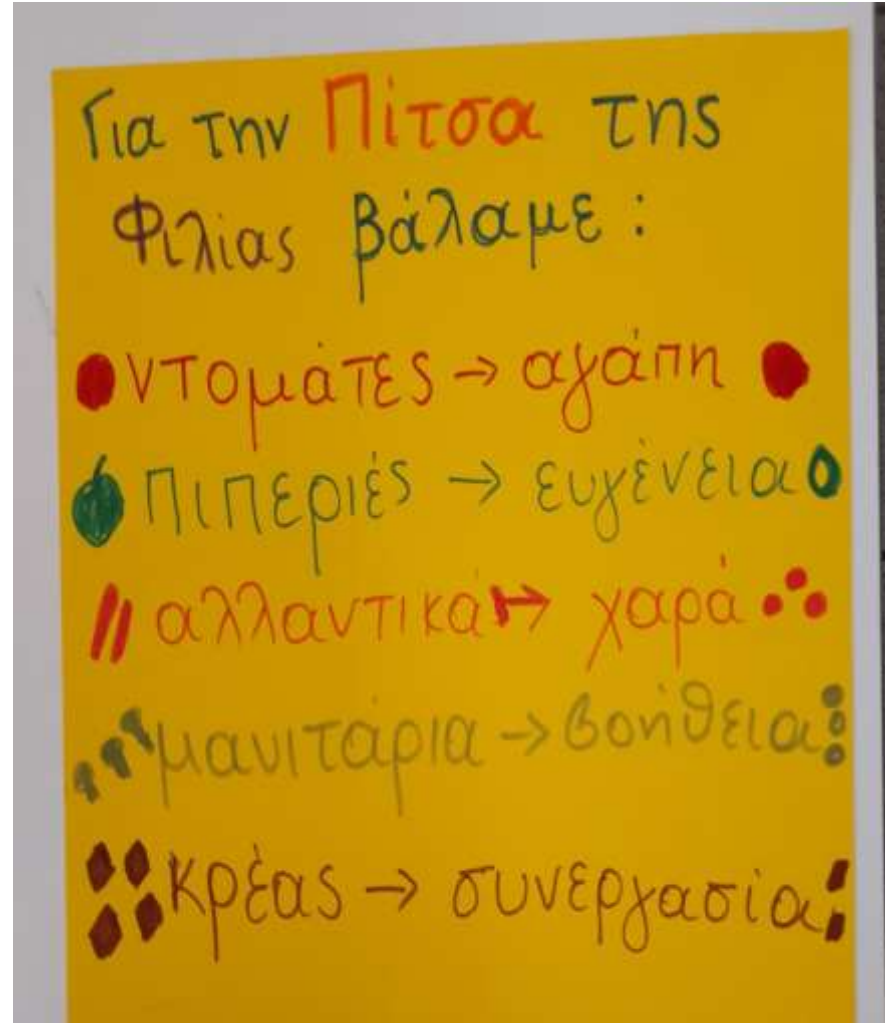 Για την Πίτσα της
Φιλίας βάλαμε :
ντομάτες → αγάπη
Πιπεριές → ευγένεια
αλλαντικά → χαρά
μανιτάρια → βοήθεια
κρέας → συνεργασία